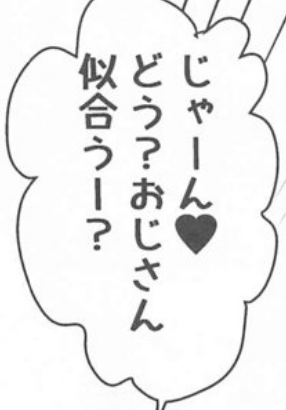 じゃーん♥
どう？おじさん
似合うー？